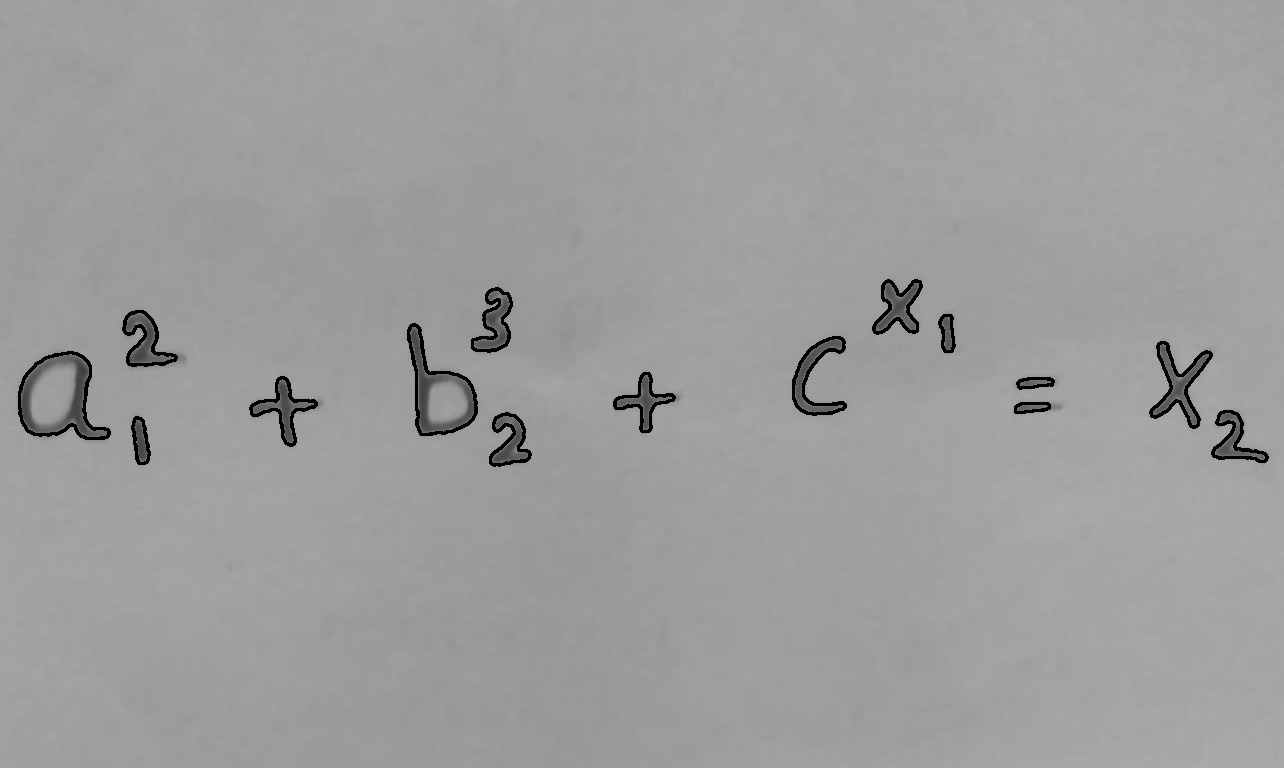 a_1^2 + b_2^3 + c^{x_1} = x_2